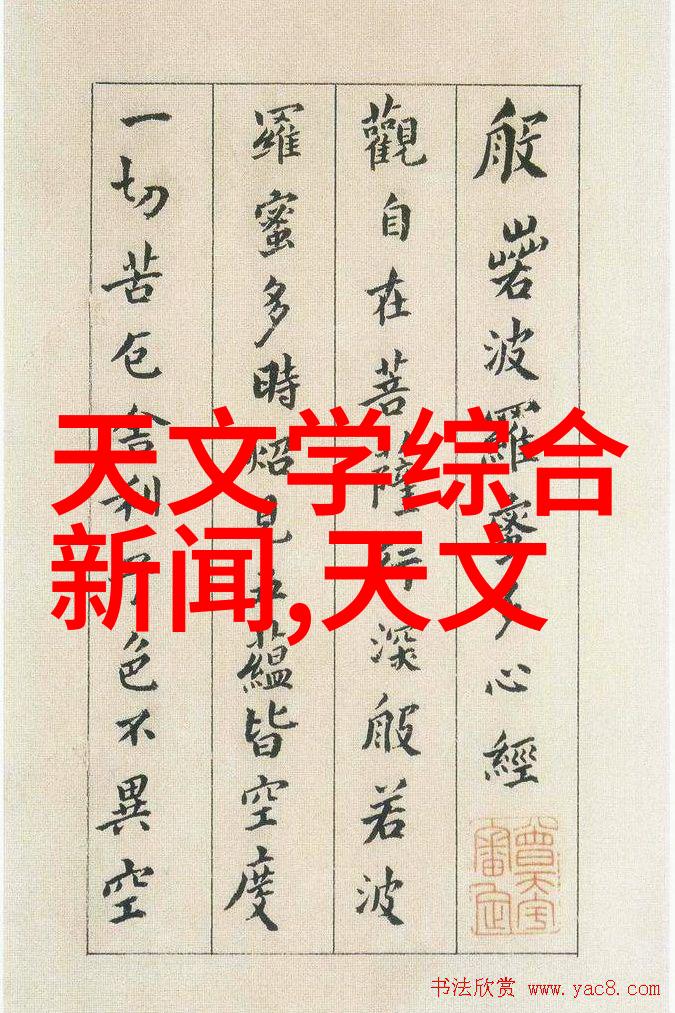 般若波羅蜜多心經
觀自在菩薩行深般若波
羅蜜多時照見五蘊皆空度
一切苦厄舍利子色不異空
天文学综合
新闻,天文
书法欣赏 www.yac8.com